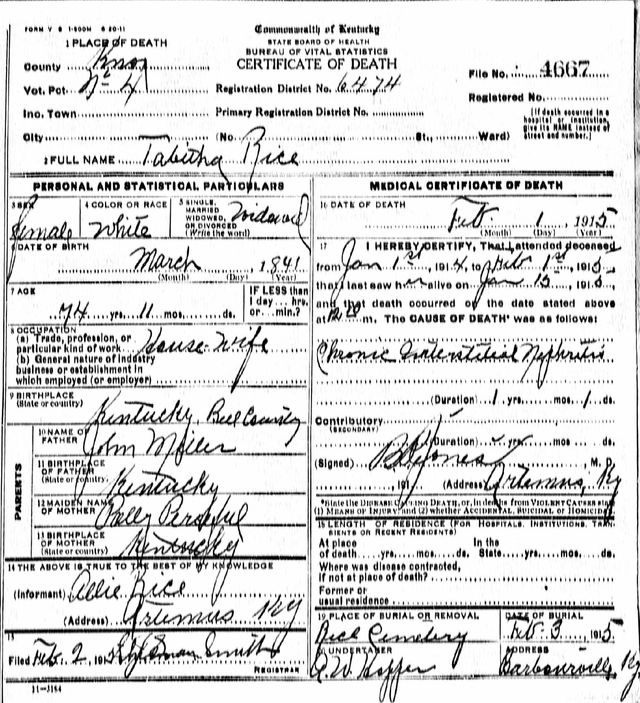 FORM V S 1-500M 6 20-11
Commonwealth of Kentucky
STATE BOARD OF HEALTH
BUREAU OF VITAL STATISTICS
CERTIFICATE OF DEATH
1 PLACE OF DEATH
County Knox
Vot. Pct. No 4
Registration District No. 6474
File No. 4667
Ino. Town
Primary Registration District No.
Registered No.
City
(No
St.,
Ward)
[If death occurred in a
hospital or institution,
give its NAME instead of
street and number.]
2 FULL NAME Tabitha Rice
PERSONAL AND STATISTICAL PARTICULARS
3 SEX
Female
4 COLOR OR RACE
White
5 SINGLE,
MARRIED
WIDOWED,
OR DIVORCED
(Write the word)
Widowed
6 DATE OF BIRTH
March 1841
(Month) (Day) (Year)
7 AGE
74 yrs. 11 mos. ds.
IF LESS than
1 day hrs.
or min.?
8 OCCUPATION
(a) Trade, profession, or
particular kind of work House-wife
(b) General nature of industry
business or establishment in
which employed (or employer)
9 BIRTHPLACE
(State or country)
Kentucky, Bell County
PARENTS
10 NAME OF
FATHER
John
11 BIRTHPLACE
OF FATHER
(State or country)
Kentucky
12 MAIDEN NAME
OF MOTHER
13 BIRTHPLACE
OF MOTHER
(State or country)
Kentucky
14 THE ABOVE IS TRUE TO THE BEST OF MY KNOWLEDGE
(Informant) Allie Rice
(Address) Artemus Ky
15
Filed Feb. 2, 191 Smith
REGISTRAR
11-3184
MEDICAL CERTIFICATE OF DEATH
16 DATE OF DEATH
Feb. 1, 1915
(Month) (Day) (Year)
17 I HEREBY CERTIFY, That I attended deceased
from Jan 1st, 1914, to Feb 1st, 1915,
that I last saw her alive on Jan 15, 1915,
and that death occurred on the date stated above
at 12 m. The CAUSE OF DEATH* was as follows:
Chronic Interstitial Nephritis
(Duration) 1 yrs. mos. 1 ds.
Contributory
(SECONDARY)
(Duration) yrs. mos. ds.
(Signed) Jones, M. D.
, 191 (Address) Artemus, Ky
*State the DISEASE CAUSING DEATH, or, in deaths from VIOLENT CAUSES state
(1) MEANS OF INJURY; and (2) whether ACCIDENTAL, SUICIDAL or HOMICIDAL
18 LENGTH OF RESIDENCE (FOR HOSPITALS, INSTITUTIONS, TRAN-
SIENTS OR RECENT RESIDENTS)
At place In the
of death yrs. mos. ds. State yrs. mos. ds.
Where was disease contracted,
if not at place of death?
Former or
usual residence
19 PLACE OF BURIAL OR REMOVAL
Rice Cemetery
DATE OF BURIAL
Feb. 3, 1915
20 UNDERTAKER
ADDRESS
Barbourville, Ky